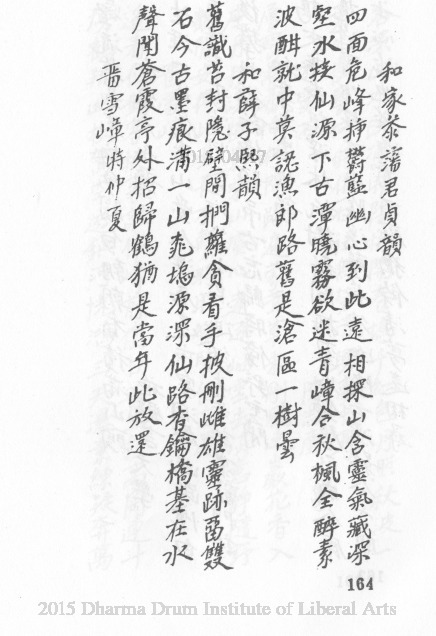 和家叅藩君貞韻
四面危峰揷欝藍幽心到此遠相探山含靈氣藏深
壑水接仙源下古潭曉霧欲迷青嶂合秋楓全醉素
波酣就中莫認漁郎路舊是滄區一樹曇
和薛子熙韻
舊識苔封隱壁間捫蘿貪看手披刪雌雄靈跡留雙
石今古墨痕滿一山塢源深仙路有鑰橋基在水
聲聞蒼霞亭外招歸鶴猶是當年此放還
晋雪嶂時仲夏
164
2015 Dharma Drum Institute of Liberal Arts